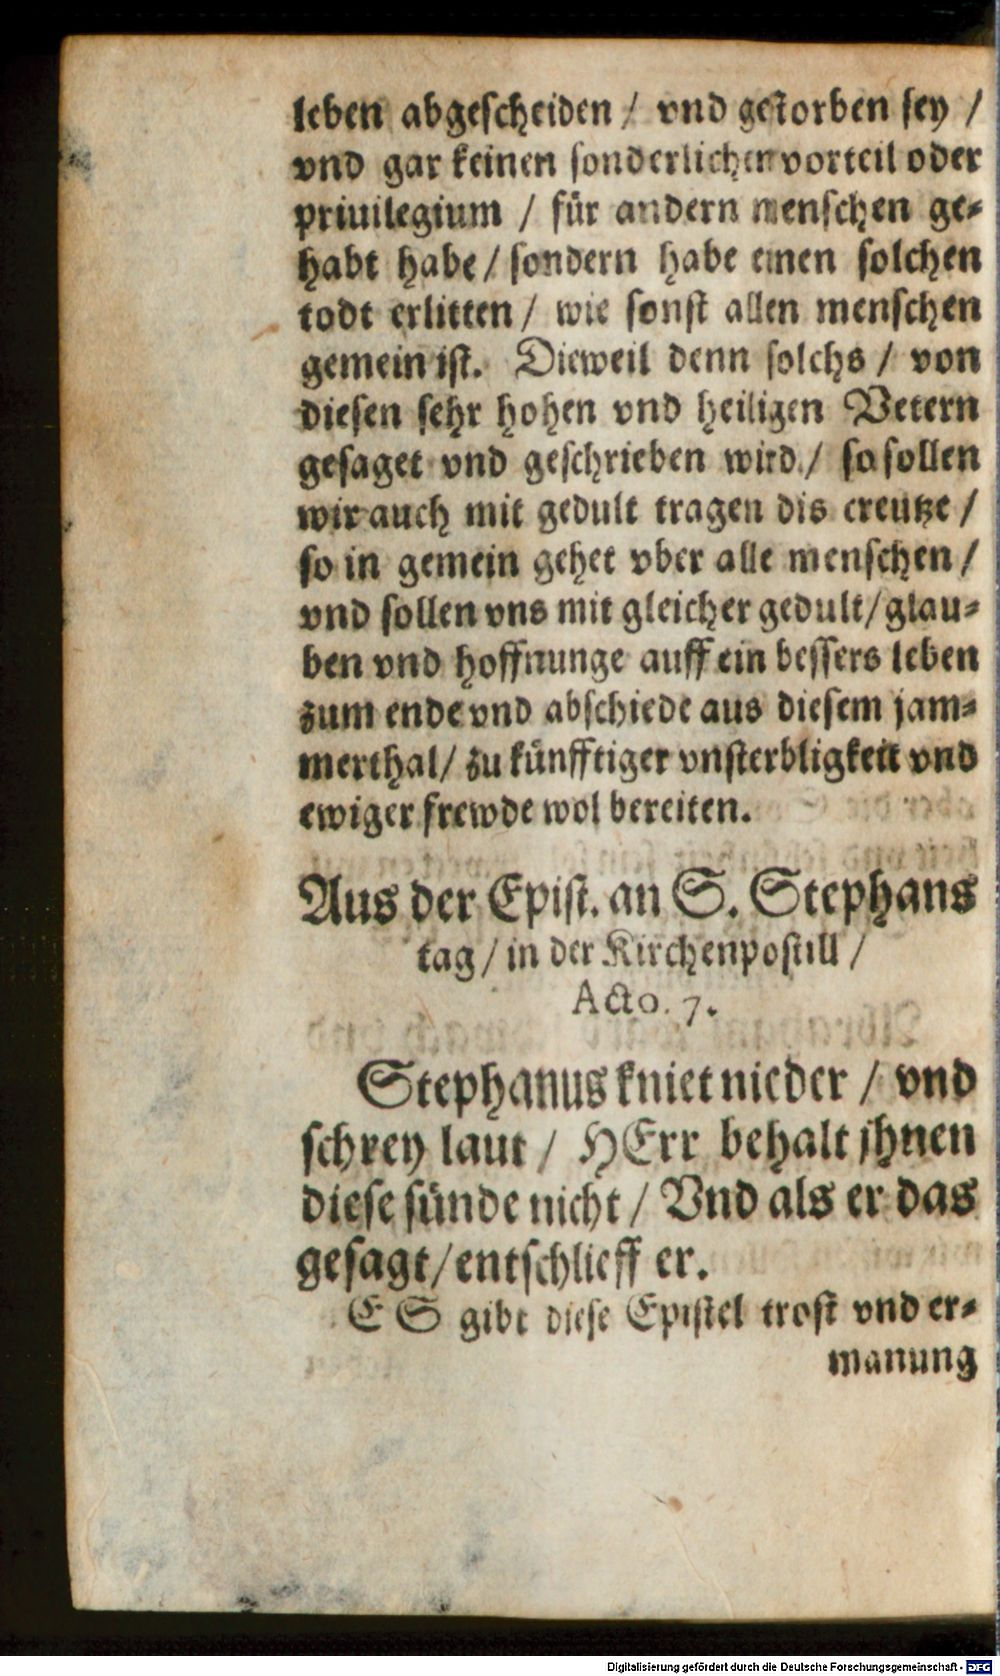 leben abgescheiden / vnd gestorben sey /
vnd gar keinen sonderlichen vorteil oder
priuilegium / für andern menschen ge-
habt habe / sondern habe einen solchen
todt erlitten / wie sonst allen menschen
gemein ist. Dieweil denn solchs / von
diesen sehr hohen vnd heiligen Vetern
gesaget vnd geschrieben wird / so sollen
wir auch mit gedult tragen dis creutze /
so in gemein gehet vber alle menschen /
vnd sollen vns mit gleicher gedult / glau-
ben vnd hoffnunge auff ein bessers leben
zum ende vnd abschiede aus diesem jam-
merthal / zu künfftiger vnsterbligkeit vnd
ewiger frewde wol bereiten.
Aus der Epist. an S. Stephans
tag / in der Kirchenpostill /
Acto. 7.
Stephanus kniet nieder / vnd
schrey laut / HErr behalt jhnen
diese sünde nicht / Vnd als er das
gesagt / entschlieff er.
ES gibt diese Epistel trost vnd er-
manung
Digitalisierung gefördert durch die Deutsche Forschungsgemeinschaft - DFG